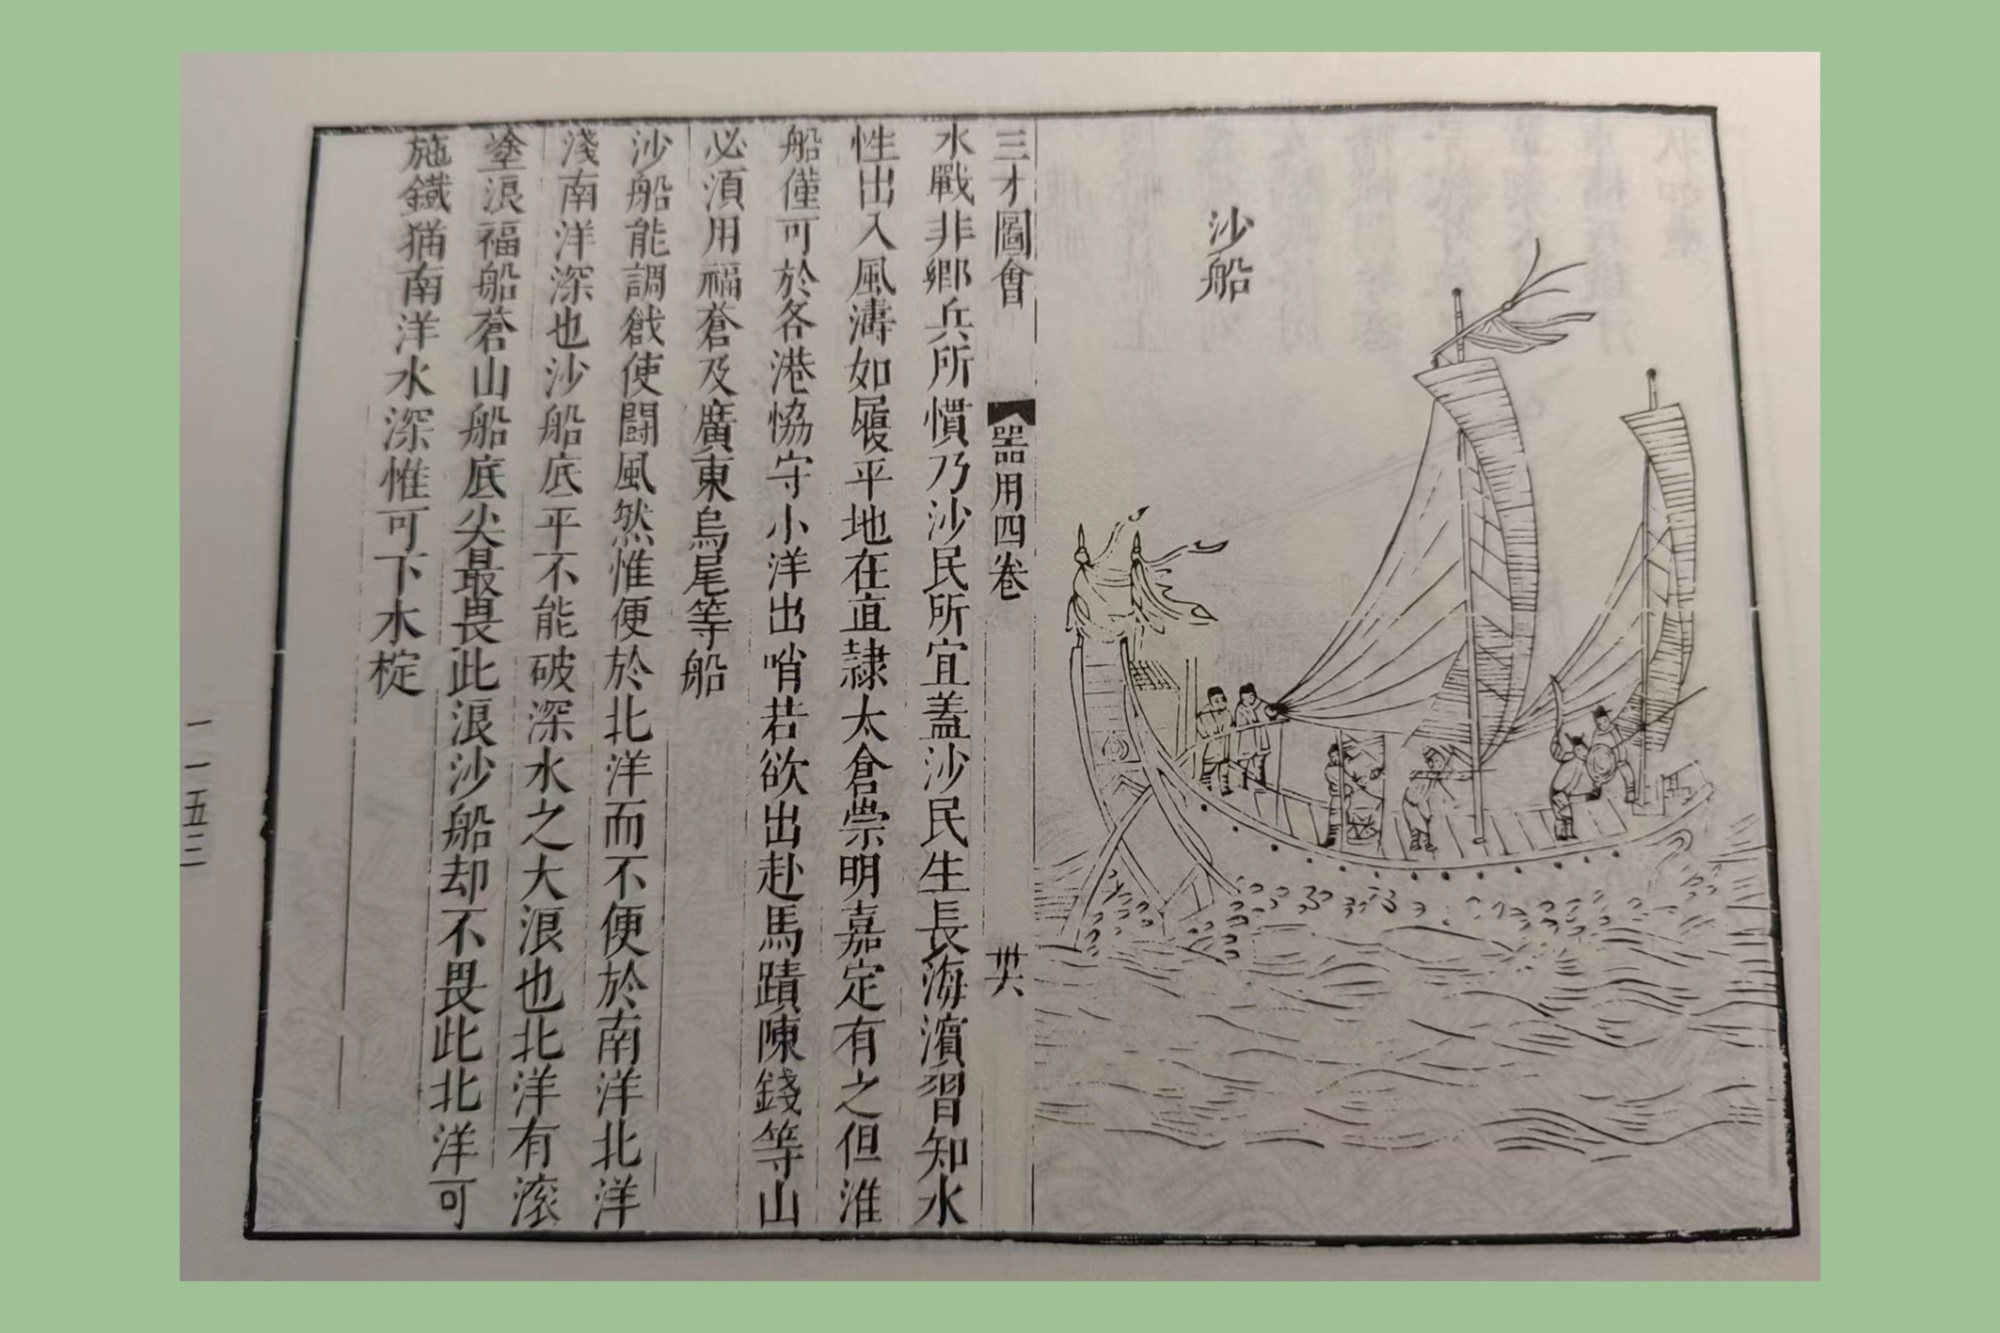 沙船
三才圖會
器用四卷
卅六
水戰非鄉兵所慣乃沙民所宜蓋沙民生長海濱習知水
性出入風濤如履平地在直隷太倉崇明嘉定有之但淮
船僅可於各港恊守小洋出哨若欲出赴馬蹟陳錢等山
必須用福蒼及廣東烏尾等船
沙船能調戧使鬪風然惟便於北洋而不便於南洋北洋
淺南洋深也沙船底平不能破深水之大浪也北洋有滾
塗浪福船蒼山船底尖最畏此浪沙船却不畏此北洋可
施鐵猫南洋水深惟可下木椗
一一五二